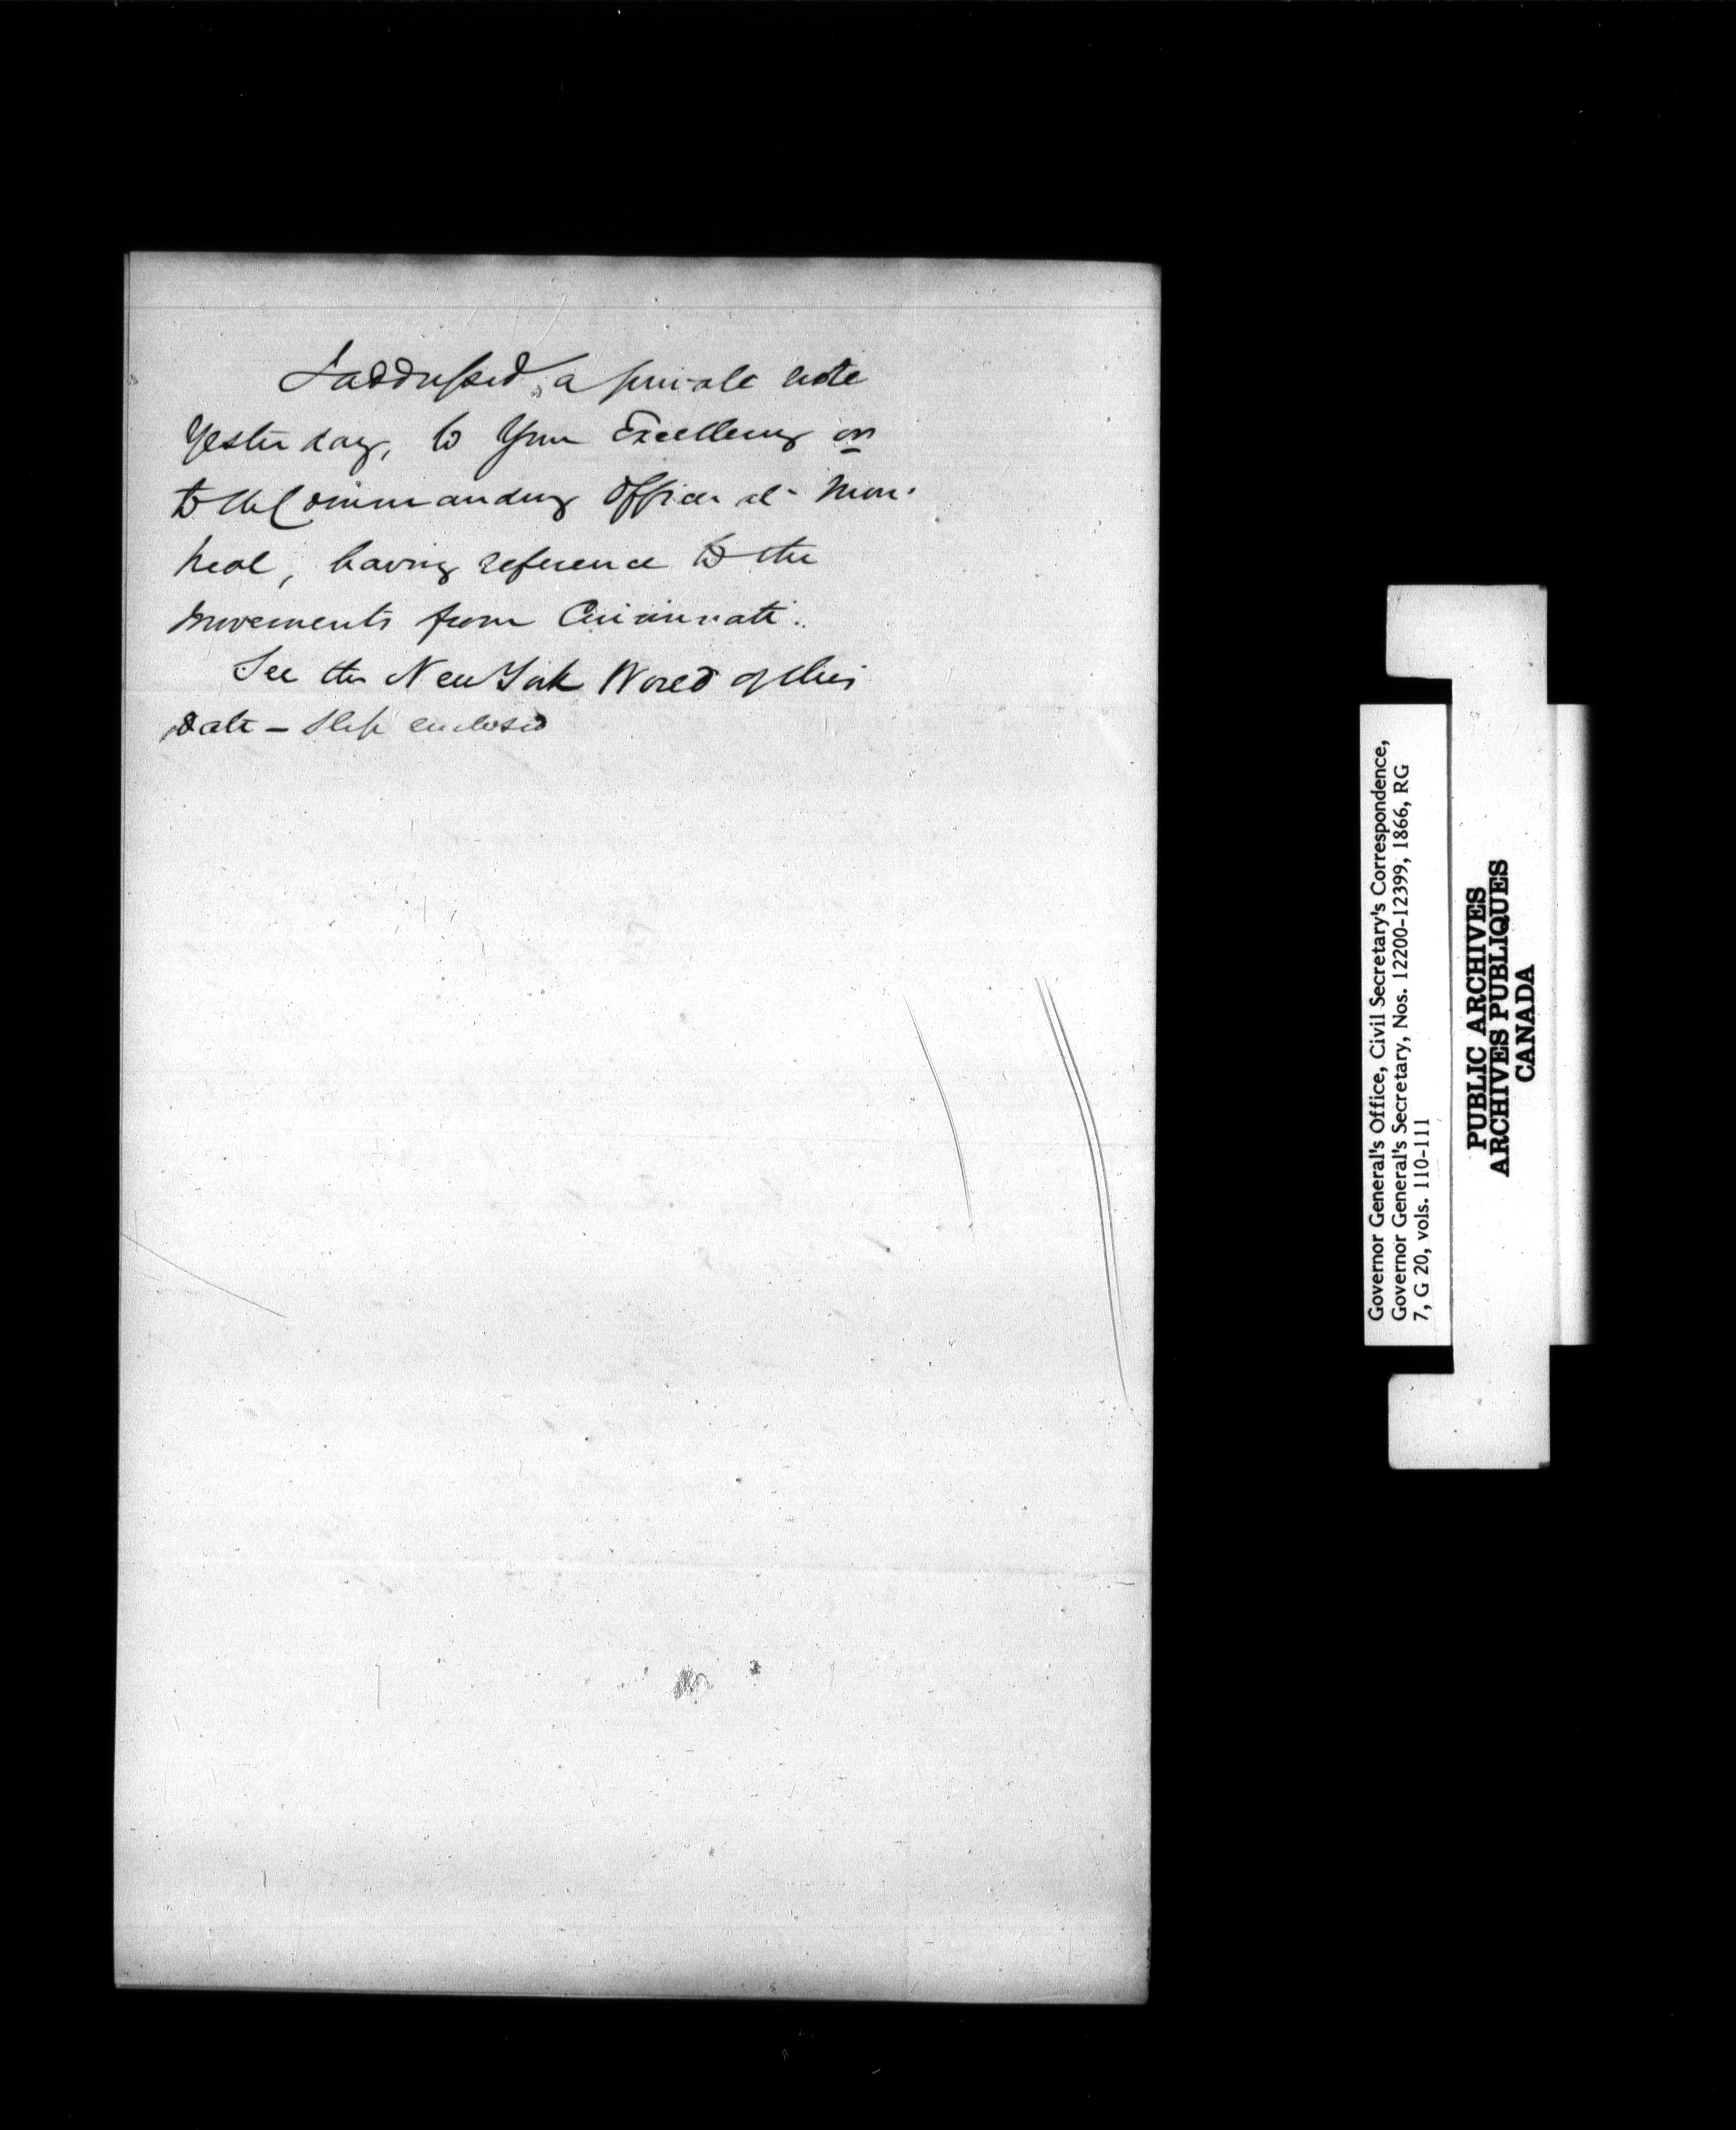 I addressed, a private note
Yesterday, to Your Excellency or
to the Commanding Officer at Mon-
treal, having reference to the
movements from Cincinnati.
See the New York World of this
date – Slip enclosed
Governor General's Office, Civil Secretary's Correspondence,
Governor General's Secretary, Nos. 12200-12399, 1866, RG
7, G 20, vols. 110-111
PUBLIC ARCHIVES
ARCHIVES PUBLIQUES
CANADA